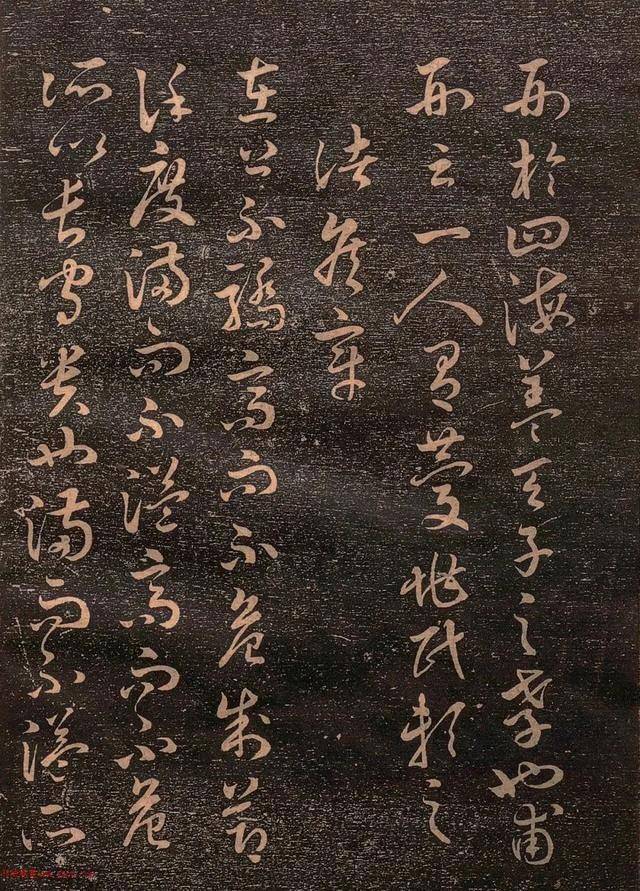 刑於四海蓋天子之孝也甫
刑云一人有慶兆民賴之
諸侯章
在上不驕高而不危制節
謹度滿而不溢高而不危
所以長守貴也滿而不溢所